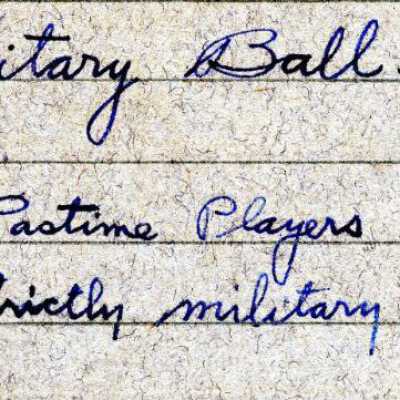 itary Ball.
Pastime Players
trictly military